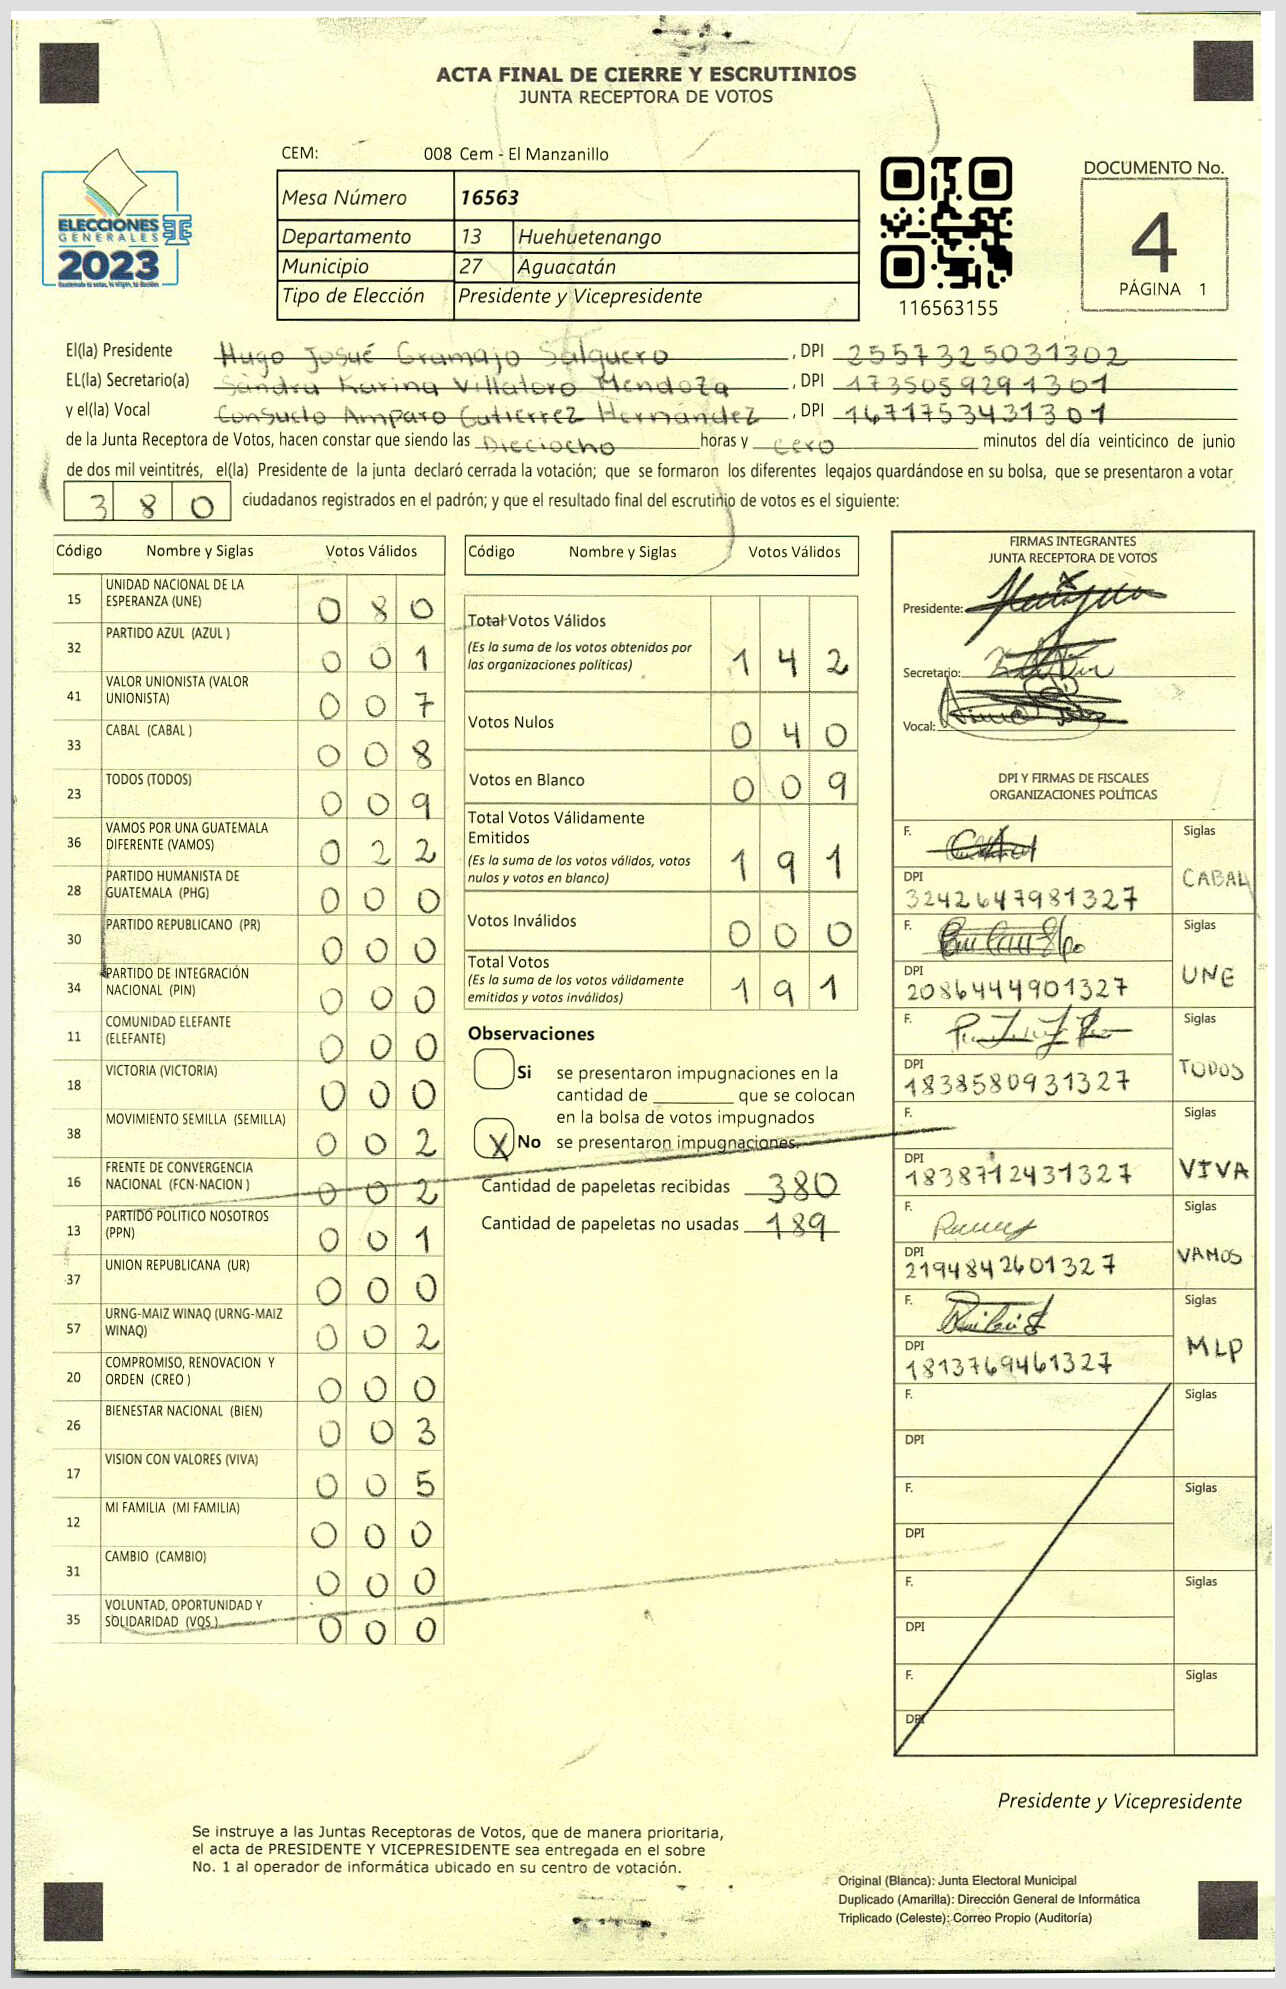 ACTA FINAL DE CIERRE Y ESCRUTINIOS
JUNTA RECEPTORA DE VOTOS
ELECCIONES
GENERALES
2023
CEM: 008 Cem - El Manzanillo
Mesa Número 16563
Departamento 13 Huehuetenango
Municipio 27 Aguacatán
Tipo de Elección Presidente y Vicepresidente
116563155
DOCUMENTO No.
4
PÁGINA 1
El(la) Presidente Hugo Josué Gramajo Salguero, DPI 2557325031302
EL(la) Secretario(a) Sandra Karina Villatoro Mendoza, DPI 1735059291301
y el(la) Vocal Consuelo Amparo Gutierrez Hernández, DPI 1671753431301
de la Junta Receptora de Votos, hacen constar que siendo las Dieciocho horas y cero minutos del día veinticinco de junio
de dos mil veintitrés, el(la) Presidente de la junta declaró cerrada la votación; que se formaron los diferentes legajos quardándose en su bolsa, que se presentaron a votar
380 ciudadanos registrados en el padrón; y que el resultado final del escrutinio de votos es el siguiente:
Código Nombre y Siglas Votos Válidos
15 UNIDAD NACIONAL DE LA
ESPERANZA (UNE) 080
32 PARTIDO AZUL (AZUL ) 001
41 VALOR UNIONISTA (VALOR
UNIONISTA) 007
33 CABAL (CABAL ) 008
23 TODOS (TODOS) 009
36 VAMOS POR UNA GUATEMALA
DIFERENTE (VAMOS) 022
28 PARTIDO HUMANISTA DE
GUATEMALA (PHG) 000
30 PARTIDO REPUBLICANO (PR) 000
34 PARTIDO DE INTEGRACIÓN
NACIONAL (PIN) 000
11 COMUNIDAD ELEFANTE
(ELEFANTE) 000
18 VICTORIA (VICTORIA) 000
38 MOVIMIENTO SEMILLA (SEMILLA) 002
16 FRENTE DE CONVERGENCIA
NACIONAL (FCN-NACION ) 002
13 PARTIDO POLITICO NOSOTROS
(PPN) 001
37 UNION REPUBLICANA (UR) 000
57 URNG-MAIZ WINAQ (URNG-MAIZ
WINAQ) 002
20 COMPROMISO, RENOVACION Y
ORDEN (CREO ) 000
26 BIENESTAR NACIONAL (BIEN) 003
17 VISION CON VALORES (VIVA) 005
12 MI FAMILIA (MI FAMILIA) 000
31 CAMBIO (CAMBIO) 000
35 VOLUNTAD, OPORTUNIDAD Y
SOLIDARIDAD (VOS ) 000
Código Nombre y Siglas Votos Válidos
Total Votos Válidos
(Es la suma de los votos obtenidos por
las organizaciones políticas) 142
Votos Nulos 040
Votos en Blanco 009
Total Votos Válidamente
Emitidos
(Es la suma de los votos válidos, votos
nulos y votos en blanco) 191
Votos Inválidos 000
Total Votos
(Es la suma de los votos válidamente
emitidos y votos inválidos) 191
Observaciones
Si se presentaron impugnaciones en la
cantidad de ________ que se colocan
en la bolsa de votos impugnados
X No se presentaron impugnaciones.
Cantidad de papeletas recibidas 380
Cantidad de papeletas no usadas 189
FIRMAS INTEGRANTES
JUNTA RECEPTORA DE VOTOS
Presidente:
Secretario:
Vocal:
DPI Y FIRMAS DE FISCALES
ORGANIZACIONES POLÍTICAS
F. Siglas
DPI CABAL
3242647981327
F. Siglas
DPI UNE
2086444901327
F. Siglas
DPI TODOS
1838580931327
F. Siglas
DPI VIVA
1838712431327
F. Siglas
DPI VAMOS
2194842601327
F. Siglas
DPI MLP
1813769461327
F. Siglas
DPI
F. Siglas
DPI
F. Siglas
DPI
F. Siglas
DPI
Presidente y Vicepresidente
Se instruye a las Juntas Receptoras de Votos, que de manera prioritaria,
el acta de PRESIDENTE Y VICEPRESIDENTE sea entregada en el sobre
No. 1 al operador de informática ubicado en su centro de votación.
Original (Blanca): Junta Electoral Municipal
Duplicado (Amarilla): Dirección General de Informática
Triplicado (Celeste): Correo Propio (Auditoría)